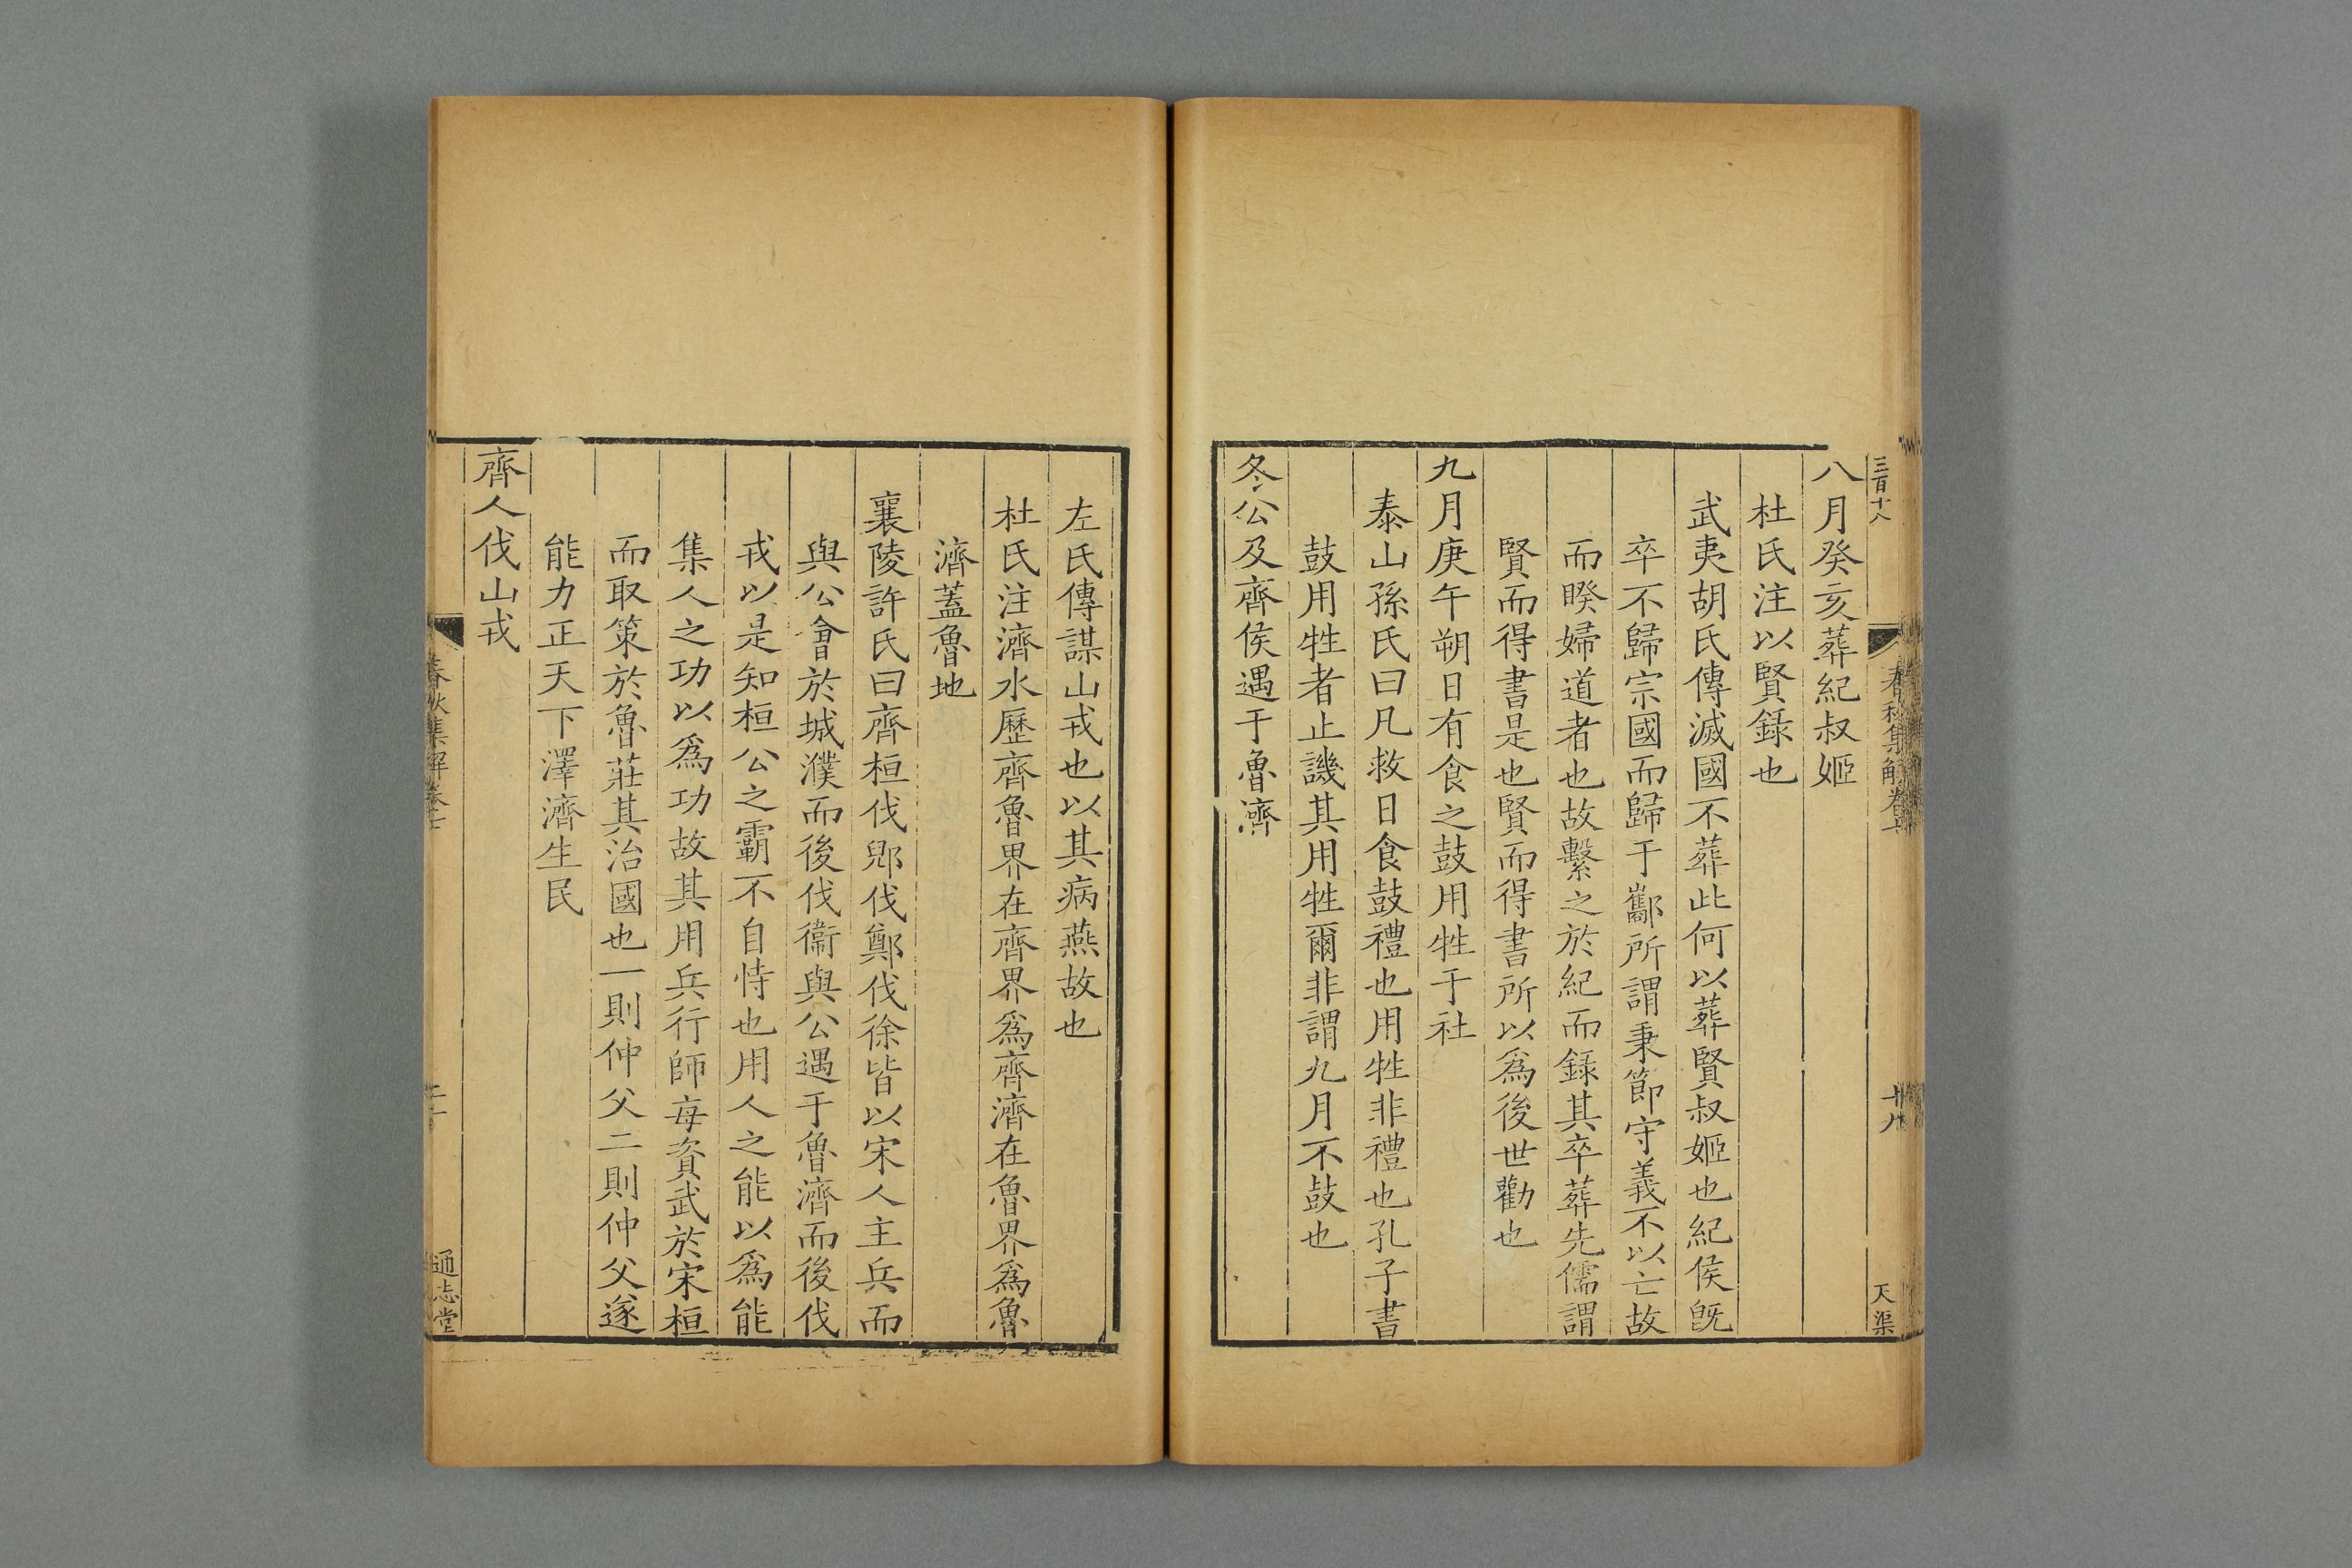 三百十八
天渠
八月癸亥葬紀叔姬
杜氏注以賢録也
武夷胡氏傳滅國不葬此何以葬賢叔姬也紀侯旣
卒不歸宗國而歸于酅所謂秉節守義不以亡故
而睽婦道者也故繫之於紀而録其卒葬先儒謂
賢而得書是也賢而得書所以爲後世勸也
九月庚午朔日有食之鼓用牲于社
泰山孫氏曰凡救日食鼓禮也用牲非禮也孔子書
鼓用牲者止譏其用牲爾非謂九月不鼓也
冬公及齊侯遇于魯濟
左氏傳謀山戎也以其病燕故也
杜氏注濟水歷齊魯界在齊界爲齊濟在魯界爲魯
濟蓋魯地
襄陵許氏曰齊桓伐郳伐鄭伐徐皆以宋人主兵而
與公會於城濮而後伐衞與公遇于魯濟而後伐
戎以是知桓公之霸不自恃也用人之能以爲能
集人之功以爲功故其用兵行師每資武於宋桓
而取策於魯莊其治國也一則仲父二則仲父遂
能力正天下澤濟生民
齊人伐山戎
春秋集解卷
通志堂